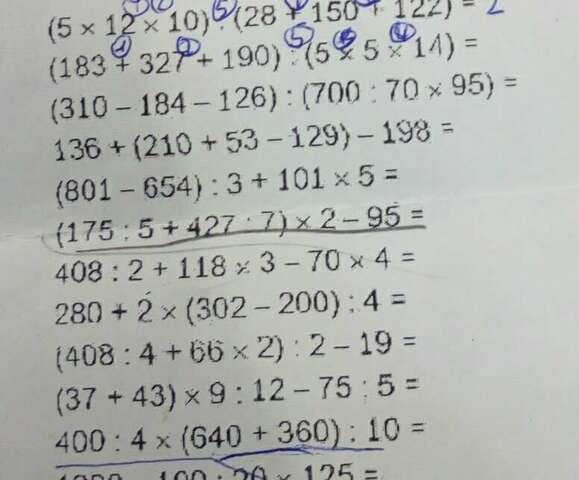 (5 × 12 × 10) : (28 + 150 + 122) = 2
(183 + 327 + 190) : (5 × 5 × 14) =
(310 – 184 – 126) : (700 : 70 × 95) =
136 + (210 + 53 – 129) – 198 =
(801 – 654) : 3 + 101 × 5 =
(175 : 5 + 427 : 7) × 2 – 95 =
408 : 2 + 118 × 3 – 70 × 4 =
280 + 2 × (302 – 200) : 4 =
(408 : 4 + 66 × 2) : 2 – 19 =
(37 + 43) × 9 : 12 – 75 : 5 =
400 : 4 × (640 + 360) : 10 =
100 : 20 × 125 =